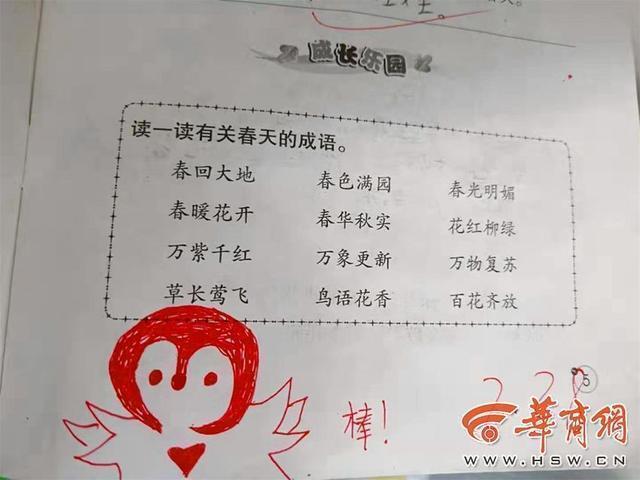 成长乐园
读一读有关春天的成语。
春回大地 春色满园 春光明媚
春暖花开 春华秋实 花红柳绿
万紫千红 万象更新 万物复苏
草长莺飞 鸟语花香 百花齐放
棒!
5
華商網
WWW.HSW.CN